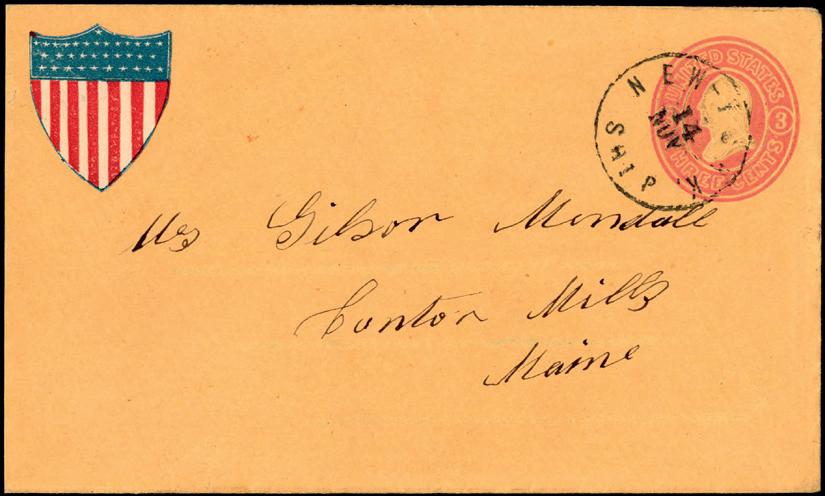 NEW-YORK SHIP
14
NOV
UNITED STATES
3
THREE CENTS
Mrs Gilson Mendall
Canton Mills
Maine